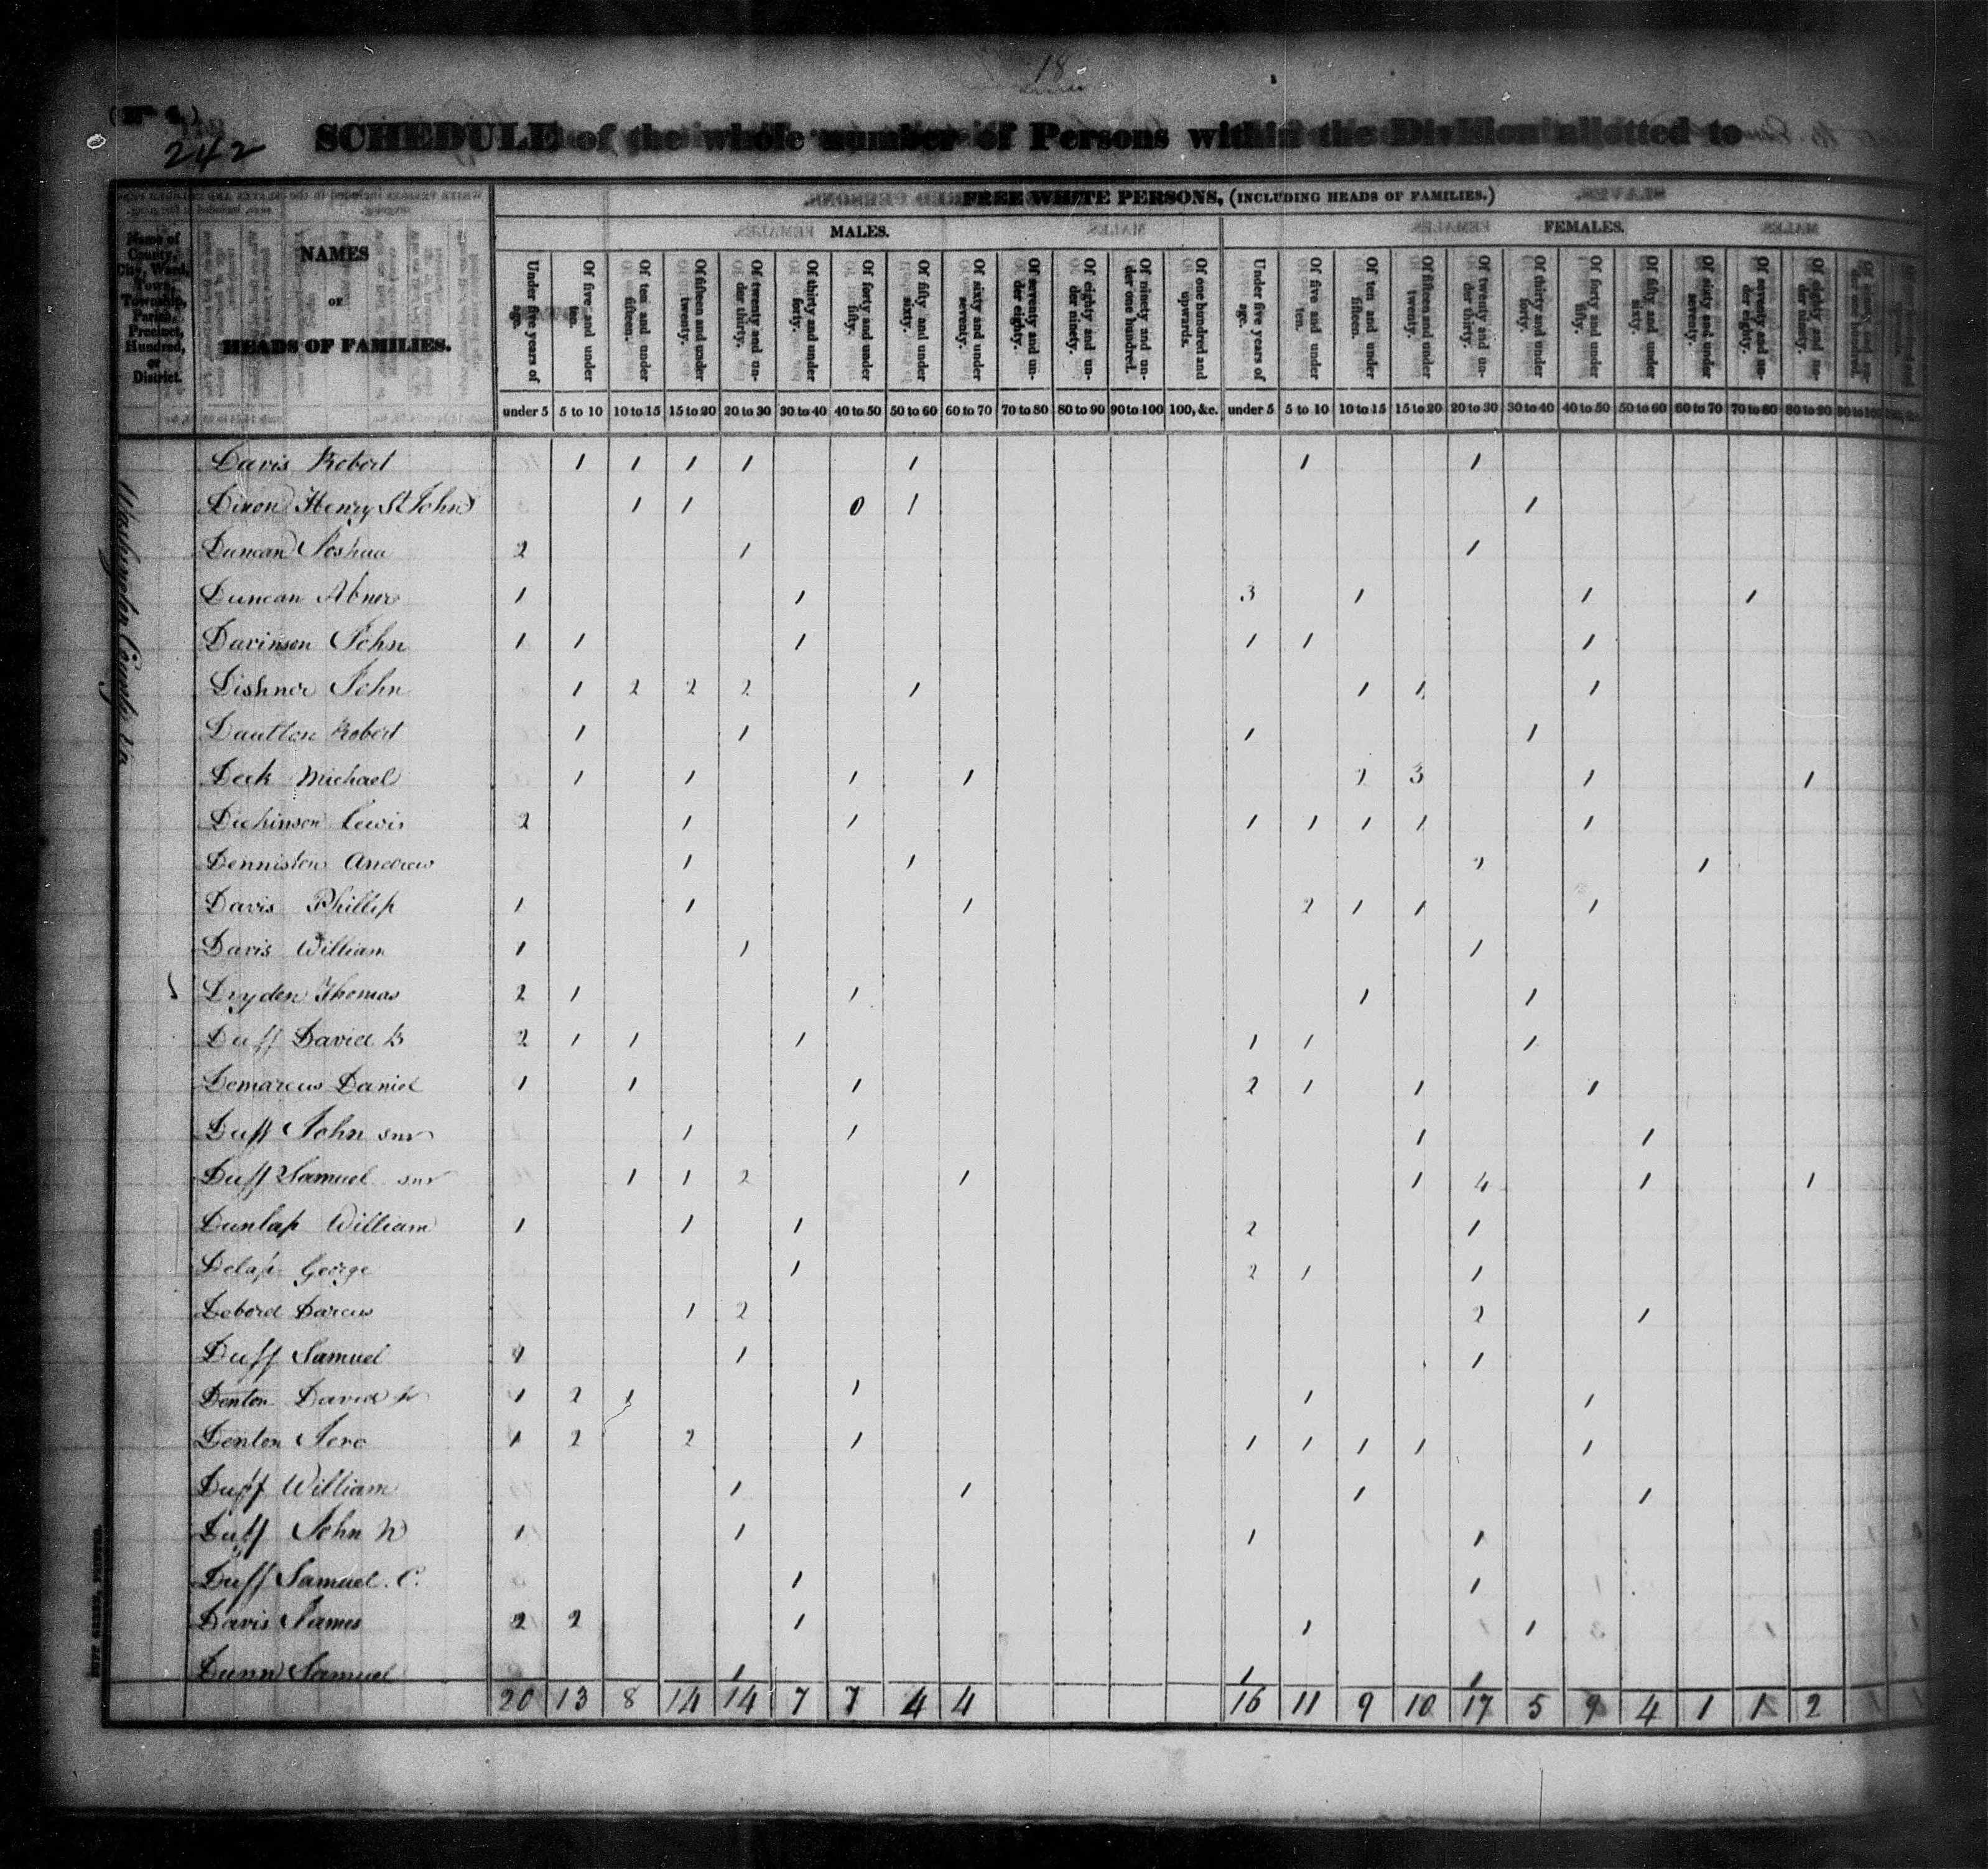 18
(No 4.)
242
SCHEDULE of the whole number of Persons within the Division allotted to
FREE WHITE PERSONS, (INCLUDING HEADS OF FAMILIES.)
MALES. FEMALES.
Name of County, City, Ward, Town, Township, Parish, Precinct, Hundred, or District.
NAMES OF HEADS OF FAMILIES.
Under five years of age. Of five and under ten. Of ten and under fifteen. Of fifteen and under twenty. Of twenty and under thirty. Of thirty and under forty. Of forty and under fifty. Of fifty and under sixty. Of sixty and under seventy. Of seventy and under eighty. Of eighty and under ninety. Of ninety and under one hundred. Of one hundred and upwards. Under five years of age. Of five and under ten. Of ten and under fifteen. Of fifteen and under twenty. Of twenty and under thirty. Of thirty and under forty. Of forty and under fifty. Of fifty and under sixty. Of sixty and under seventy. Of seventy and under eighty. Of eighty and under ninety.
under 5 5 to 10 10 to 15 15 to 20 20 to 30 30 to 40 40 to 50 50 to 60 60 to 70 70 to 80 80 to 90 90 to 100 100, &c. under 5 5 to 10 10 to 15 15 to 20 20 to 30 30 to 40 40 to 50 50 to 60 60 to 70 70 to 80 80 to 90 90 to 100
Washington County Va
Davis Robert 1 1 1 1 1 1 1
Dixon Henry St John 1 1 0 1 1
Duncan Joshua 2 1 1
Duncan Abner 1 1 3 1 1 1
Davinson John 1 1 1 1 1 1
Dishner John 1 2 2 2 1 1 1 1
Daulton Robert 1 1 1 1
Deck Michael 1 1 1 1 2 3 1 1
Dickinson Lewis 2 1 1 1 1 1 1 1
Denniston Andrew 1 1 2 1
Davis Phillip 1 1 1 2 1 1 1
Davis William 1 1 1
Dryden Thomas 2 1 1 1 1
Duff David B 2 1 1 1 1 1 1
Demarcus Daniel 1 1 1 2 1 1 1
Duff John snr 1 1 1 1
Duff Samuel snr 1 1 2 1 1 4 1 1
Dunlap William 1 1 1 2 1
Delap George 1 2 1 1
Debord Darcus 1 2 2 1
Duff Samuel 1 1 1
Denton David 1 2 1 1 1 1
Denton Jere 1 2 2 1 1 1 1 1 1
Duff William 1 1 1 1
Duff John N 1 1 1 1
Duff Samuel. C. 1 1
Davis James 2 2 1 1 1
Dunn Samuel 1 1 1
20 13 8 14 14 7 7 4 4 16 11 9 10 17 5 9 4 1 1 2